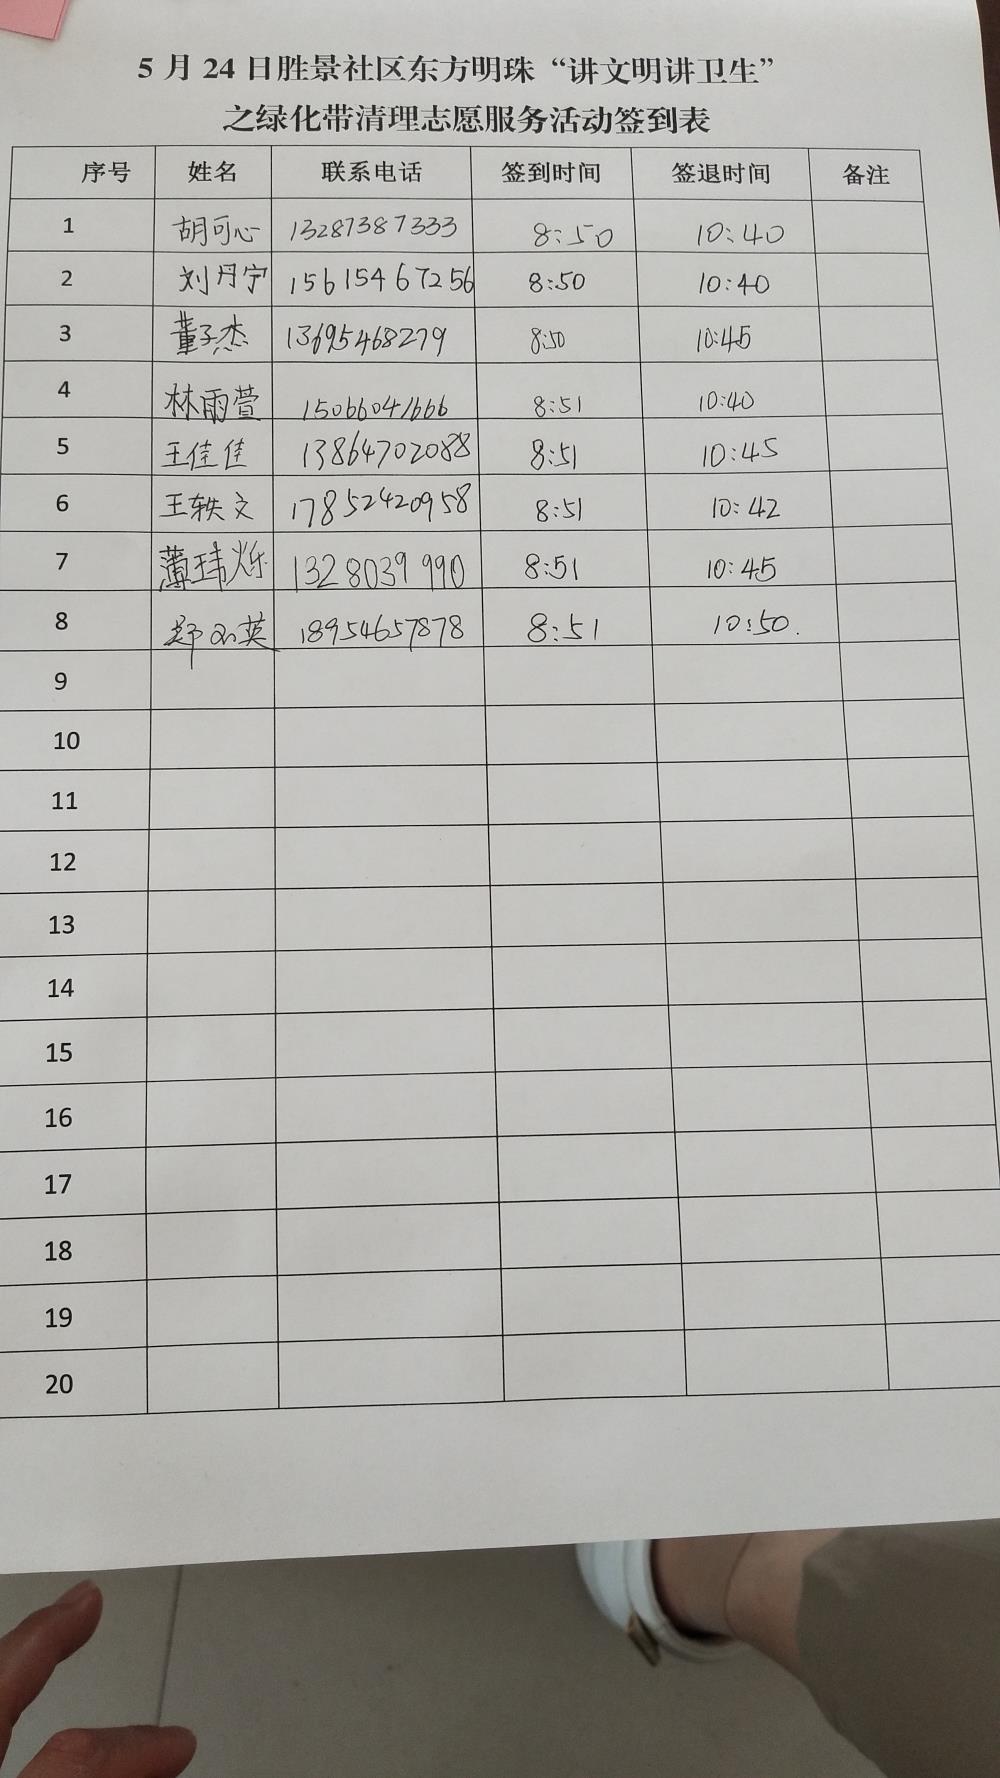 5月24日胜景社区东方明珠“讲文明讲卫生”
之绿化带清理志愿服务活动签到表
序号 姓名 联系电话 签到时间 签退时间 备注
1 胡可心 13287387333 8:50 10:40
2 刘丹宁 15615467256 8:50 10:40
3 董子杰 13695468279 8:50 10:45
4 林雨萱 15066041666 8:51 10:40
5 王佳佳 13864702088 8:51 10:45
6 王轶文 17852420958 8:51 10:42
7 薄玮烁 1328039990 8:51 10:45
8 郑 英 18954657878 8:51 10:50.
9
10
11
12
13
14
15
16
17
18
19
20